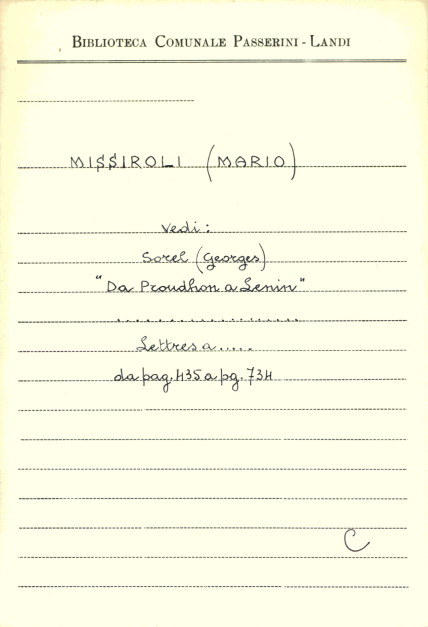 BIBLIOTECA COMUNALE PASSERINI - LANDI
MISSIROLI (MARIO)
Vedi:
Sorel (Georges)
"Da Proudhon a Lenin"
......................
Lettres a.....
da pag. 435 a pg. 734
C